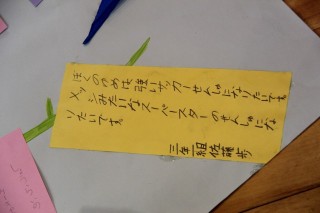 ぼくのゆめは強いサッカーせんしゅになりたいです。
メッシみたいなスーパースターのせんしゅにな
りたいです。
三年 組佐藤歩